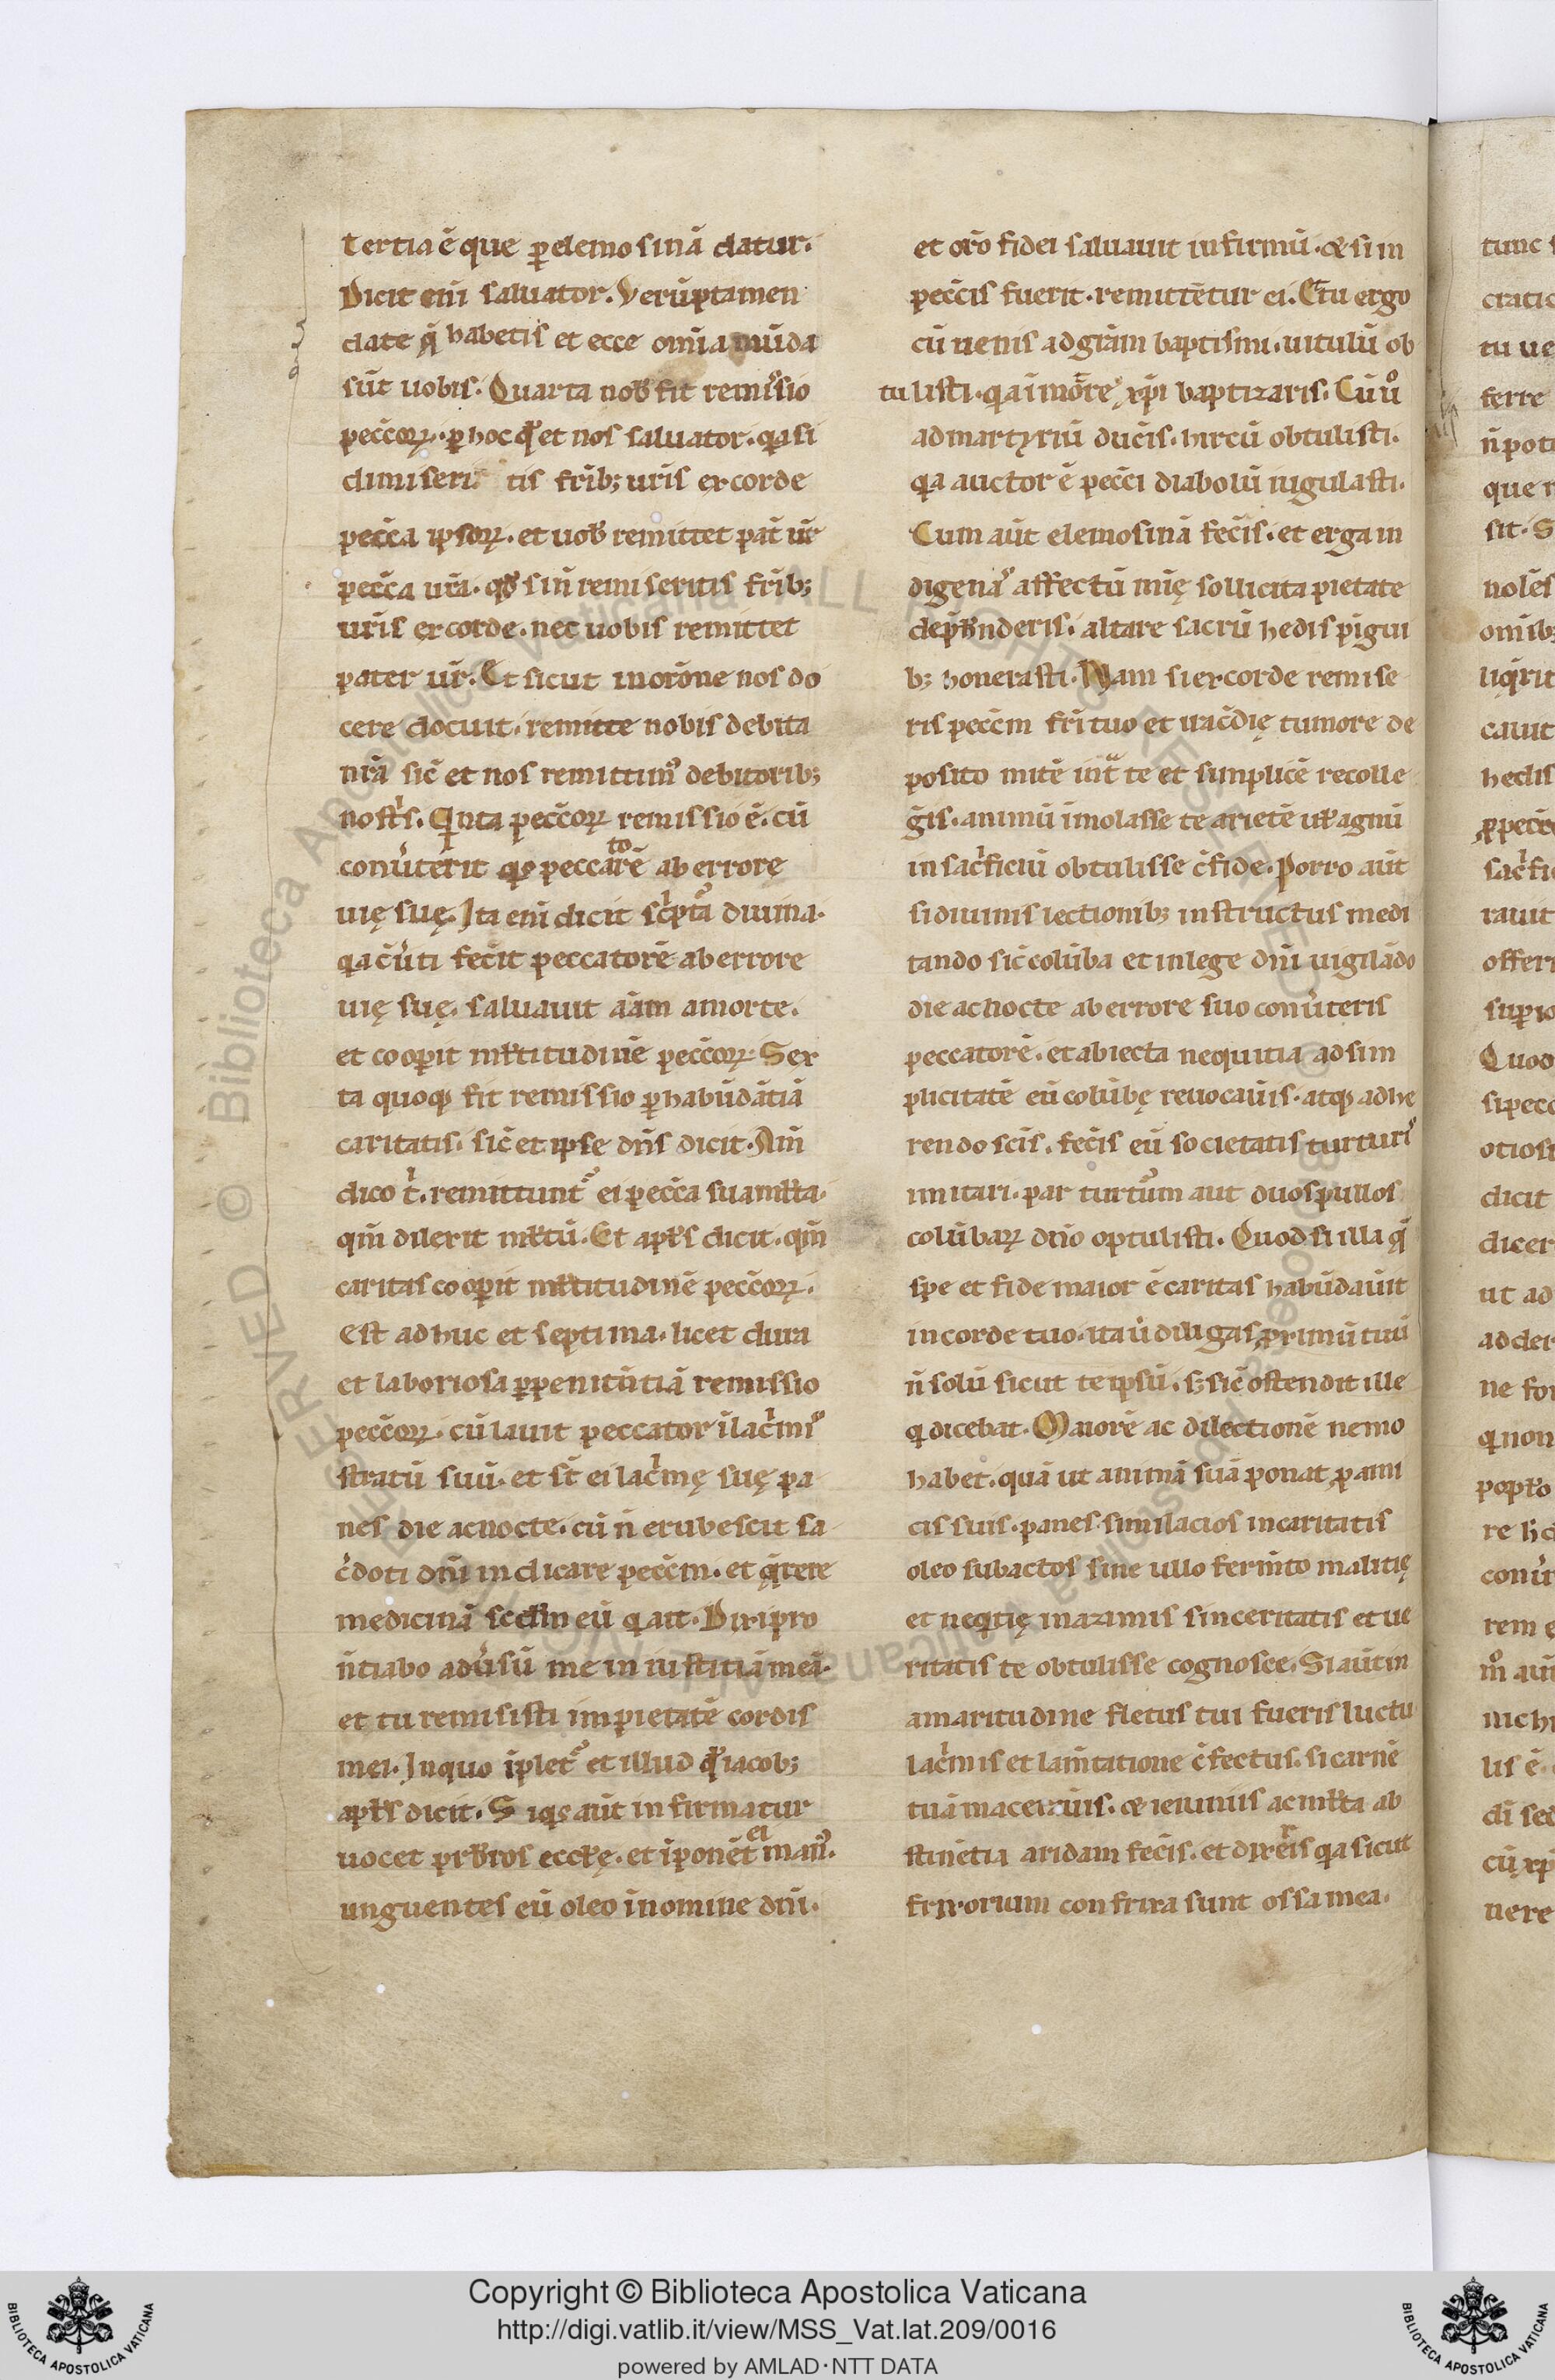 tertia ē que ꝑ elemosinā datur.
Dicit eni̅ saluator. Verūptamen
date q̄ habetis et ecce om̅ia mūda
sūt uobis. Quarta nob̅ fit remis̉io
pecc̄oꝝ. ꝑ hoc qđ et nos saluator. qͣ si
dimiseri tis fr̅ib; ur̅is ex corde
pecc̄a ipsoꝝ. et uob̅ remittet pat̅ ur̅
pecc̄a ur̅a. qđ si n̅ remiseritis fr̅ib;
ur̅is ex corde. nec uobis remittet
pater ur̅. Et sicut in or̅one nos do
cere docuit. remitte nobis debita
nr̅a sic̄ et nos remittimꝰ debitorib;
nostͥs. Qͥnta pecc̄oꝝ remissio ē. cū
conu̅terit qͥs peccatorē ab errore
uię suę. Ita eni̅ dicit scͥpta᷑ diuina.
qͥa c̄u̅ti fec̄it peccatorē ab errore
uię suę. saluauit ai̅am a morte.
et coopit ml̅titudinē pecc̄oꝝ. Sex
ta quoqꝫ fit remissio ꝑ habūdātiā
caritatis. sic̄ et ipse dn̅s dicit. Am̅
dico tͥ. remittunt᷑ ei pecc̄a sua ml̅ta.
qm̅ dilexit ml̅tū. Et apl̅s dicit. qm̅
caritas coopit ml̅titudinē pecc̄oꝝ.
Est adhuc et septima. licet dura
et laboriosa ꝑ penitn̅tiā remissio
pecc̄oꝝ. cū lauit peccator ī lacͥmis
stratū suū. et sn̅t ei lacͥmę suę pa
nes die ac nocte. cū n̅ erubescit sa
c̄doti dn̅i indicare pecc̄m. et qͣrere
medicinā scd̅m eū qͥ ait. Dixi pro
n̅tiabo adu̅sū me in iustitiā meā.
et tu remisisti impietatē cordis
mei. In quo īplet᷑ et illud qđ iacob;
apl̅s dicit. Siqͥs aūt infirmatur
uocet prb̅ros eccl̅ę. et īponēt ei manꝰ.
unguentes eū oleo ī nomine dn̅i.
et or̅o fidei saluauit infirmū. & si in
pecc̄is fuerit. remittētur ei. Et tu ergo
cū uenis ad gr̅am baptismi. uitulū ob
tulisti. qͥa ī mo̅rte xp̅i baptizaris. Cū uͦ
ad martyriū duc̄is. hircū obtulisti.
qͥa auctorē pecc̄i diabolū iugulasti.
Cum aūt elemosinā fec̄is. et erga in
digenas affectū mi̅ę sollicita pietate
dep̄hn̅deris. altare sacrū hedis pīgui
b; honerasti. Nam si ex corde remise
ris pecc̄m fr̅i tuo et iracdię tumore de
posito mitē int͛ te et simplicē recolle
g̅is. animū īmolasse te arietē ut̅ agnū
in sacͥficiū obtulisse c̄fide. Porro aūt
si diuinis lectionib; instructus medi
tando sic̄ colūba et in lege dn̅i uigilādo
die ac nocte ab errore suo conu̅teris
peccatorē. et abiecta nequitia ad sim
plicitatē eū colūbę reuocau̅is. atqꝫ adhe
rendo sc̅is. fec̄is eū societatis turturis
imitari. par turtu̅m aut duos pullos
colūbaꝝ dn̅o optulisti. Quod si illa q̄
spe et fide maior ē caritas habūdau̅it
in corde tuo. ita u̅ diligas ꝓximū tuū
n̅ solū sicut te ipsū. s; sic̄ ostendit ille
qͥ dicebat. Maiorē ac dilectionē nemo
habet. quā ut animā suā ponat ꝓ ami
cis suis. panes similacios in caritatis
oleo subactos sine ullo ferm̅to malitię
et neqͥtię in azimis sinceritatis et ue
ritatis te obtulisse cognosce. Si aūt in
amaritudine fletus tui fueris luctu
lacͥmis et lam̅tatione c̄fectus. si carnē
tuā macerau̅is. & ieiuniis ac ml̅ta ab
stinētia aridam fec̄is. et dixeris qͥa sicut
frixorium confrixa sunt ossa mea.
Copyright © Biblioteca Apostolica Vaticana
http://digi.vatlib.it/view/MSS_Vat.lat.209/0016
powered by AMLAD·NTT DATA